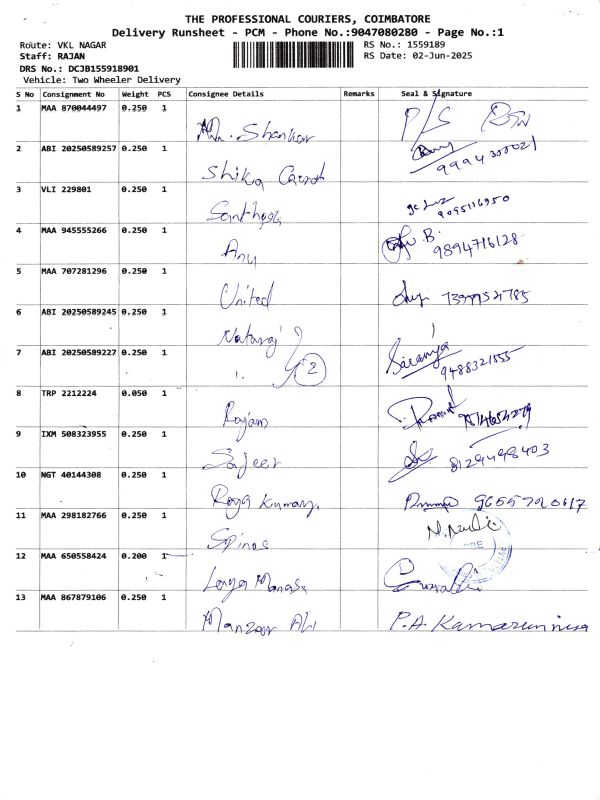 THE PROFESSIONAL COURIERS, COIMBATORE
Delivery Runsheet - PCM - Phone No.:9047080280 - Page No.:1
Route: VKL NAGAR RS No.: 1559189
Staff: RAJAN RS Date: 02-Jun-2025
DRS No.: DCJB155918901
Vehicle: Two Wheeler Delivery
S No Consignment No Weight PCS Consignee Details Remarks Seal & Signature
1 MAA 870044497 0.250 1 Mr. Shankar P/S
2 ABI 20250589257 0.250 1 Shika
3 VLI 229801 0.250 1 Santhosh 9095116950
4 MAA 945555266 0.250 1 Anu B. 9894716128
5 MAA 707281296 0.250 1 United
6 ABI 20250589245 0.250 1 Nataraj
7 ABI 20250589227 0.250 1 2 Saranya 9488321555
8 TRP 2212224 0.050 1 Rajam
9 IXM 508323955 0.250 1 Sajeer 8129498403
10 NGT 40144308 0.250 1 Roya Kumary.
11 MAA 298182766 0.250 1 Spinos
12 MAA 650558424 0.200 1
13 MAA 867879106 0.250 1 Manzoor Ali P.A. Kamarunnisa